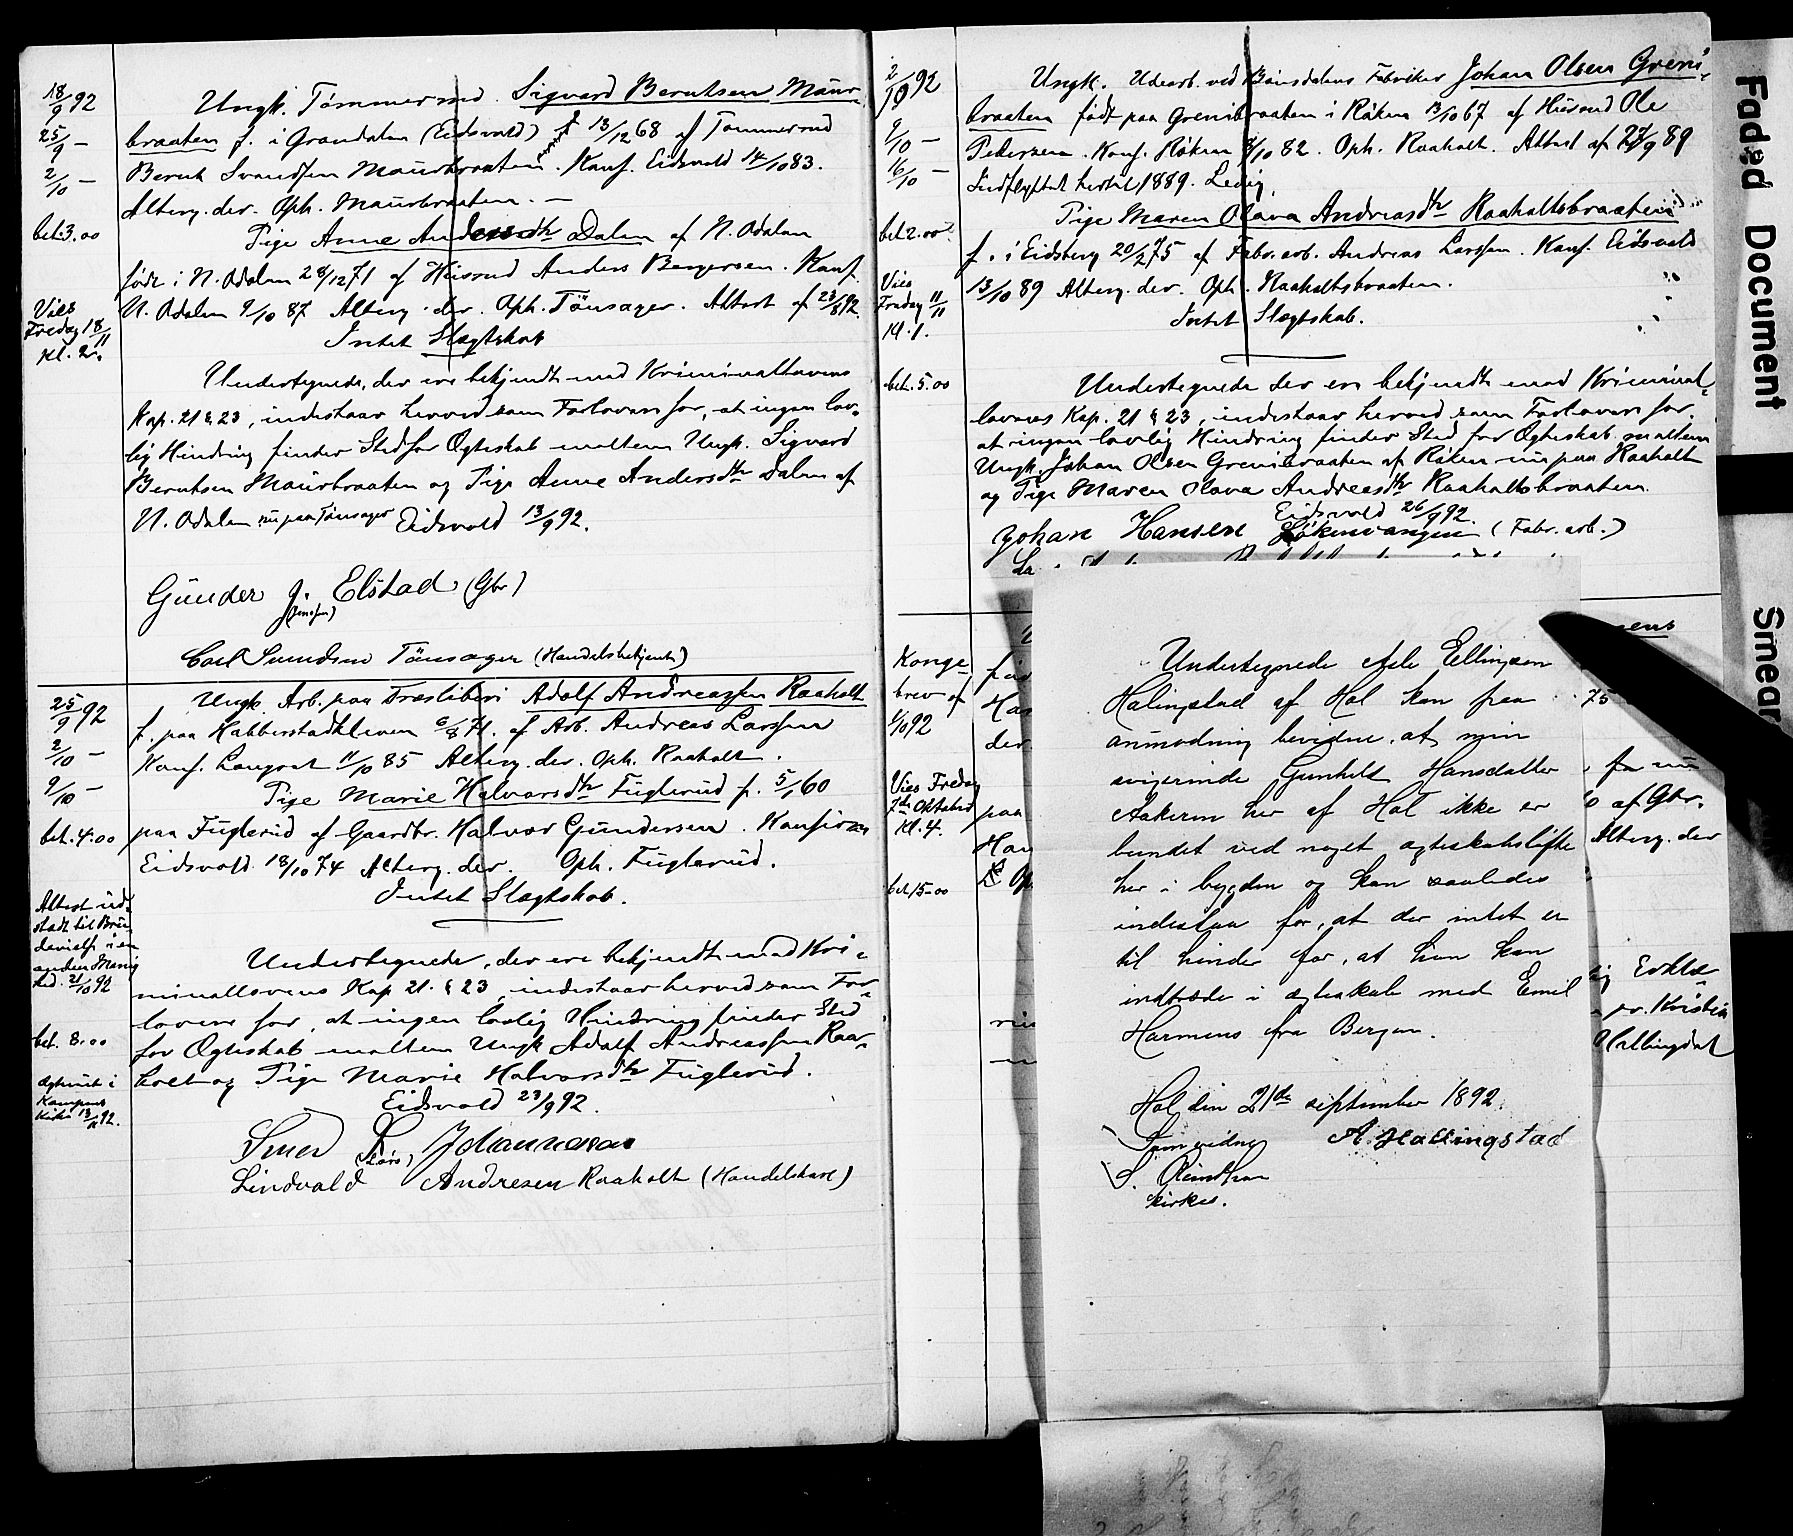 18/9 92
25/9 —
2/10 —
bet. 3.00
Vies
Fredag 18/11
Kl. 2.
Ungk. Tømmermd. Sigvard Berntsen Maur-
braaten f. i Grandalen (Eidsvold) 13/12 68 af Tømmermd
Bernt Svendsen Maurbraaten. Konf. Eidsvold 14/10 83.
Alterg. der. Oph. Maurbraaten. —
Pige Anne Andersdtr Dalen af N. Odalen
født i N. Odalen 28/12 71 af Husmd Anders Bergersen. Konf.
N. Odalen 9/10 87 Alterg. der. Oph. Tønsager. Attest af 23/8 92.
Intet Slægtskab
Undertegnede, der ere bekjendt med Kriminallovens
Kap. 21 § 23, indestaar herved som Forlovere for, at ingen lov-
lig Hindring finder Sted for Ægteskab mellem Ungk. Sigvard
Berntsen Maurbraaten og Pige Anne Andersdtr Dalen af
N. Odalen nu paa Tønsager Eidsvold 13/9 92.
Gunder J. Elstad (Gbr)
(Jensen)
Carl Tønsager (Handelsbetjent)
25/9 92
2/10 —
9/10 —
bet. 4.00
Attest ud-
stedt til Bru-
devielse i en
anden Menig
hed. 21/10 92
bet. 8.00
Ægteviet i
Kampens
Kirke 13/11 92.
Ungk. Arb. paa Træsliberi Adolf Andreassen Raaholt
f. paa Habberstadkleven 6/8 71. af Arb. Andreas Larssen
Konf. Langset 11/10 85 Alterg. der. Oph. Raaholt.
Pige Marie Halvorsdtr Fuglerud f. 5/1 60
paa Fuglerud af Gaardbr. Halvor Gundersen. Konfirm
Eidsvold 18/10 74 Alterg. der. Oph. Fuglerud.
Intet Slægtskab.
Undertegnede, der ere bekjendt med Kri-
minallovens Kap. 21. § 23, indestaar herved som For-
lovere for, at ingen lovlig Hindring finder Sted
for Ægteskab mellem Ungk Adolf Andreassen Raa-
holt og Pige Marie Halvorsdtr Fuglerud.
Eidsvold 23/9 92.
Smed L. Johannesen
(Lars)
Lindvold Andresen Raaholt (Handelskarl)
2/10 92
9/10 —
16/10 —
bet 2.00
Vies
Fredag 11/11
Kl. 1.
bet. 5.00
Ungk. Udearb. ved Bønsdalens Fabriker Johan Olsen Greni-
braaten født paa Grenibraaten i Røken 13/10 67 af Husmd Ole
Pedersen. Konf. Røken 8/10 82. Oph. Raaholt. Attest af 27/9 89
Indflyttet hertil 1889. Ledig.
Pige Maren Olava Andreasdtr Raaholtsbraaten
f. i Eidsberg 20/2 75 af Fabr. arb. Andreas Larssen. Konf. Eidsvold
13/10 89 Alterg. der. Oph. Raaholtsbraaten.
Intet Slægtskab.
Undertegnede der ere bekjendt med Kriminal-
lovens Kap. 21 § 23, indestaar herved som Forlovere for,
at ingen lovlig Hindring finder Sted for Ægteskab mellem
Ungk. Johan Olsen Grenibraaten af Røken nu paa Raaholt
og Pige Maren Olava Andreasdtr Raaholtsbraaten.
Eidsvold 26/9 92.
Johan Hansen Løkensvangen (Fabr. arb.)
Konge-
brev af
1/10 92
Vies Fredag
7de Oktober
Kl. 4.
bet 15.00
Undertegnede Asle Ellingsen
Halingstad af Hol kan fraa
anmodning bevidne, at min
svigerinde Gunhild Hansdatter
Aakeren her af Hol ikke er
bundet ved noget ægteskabsløfte
her i bygden og kan saaledes
indestaa for, at der intet er
til hinder for, at hun kan
indtræde i ægteskab med Emil
Harmens fra Bergen.
Hol den 21de september 1892.
A. Hallingstad
kirkes.
75
fr nu
af Gbr.
Alterg. der
ig Erklæ-
pr. Kristin
Hallingdal
Faded Document
Smear